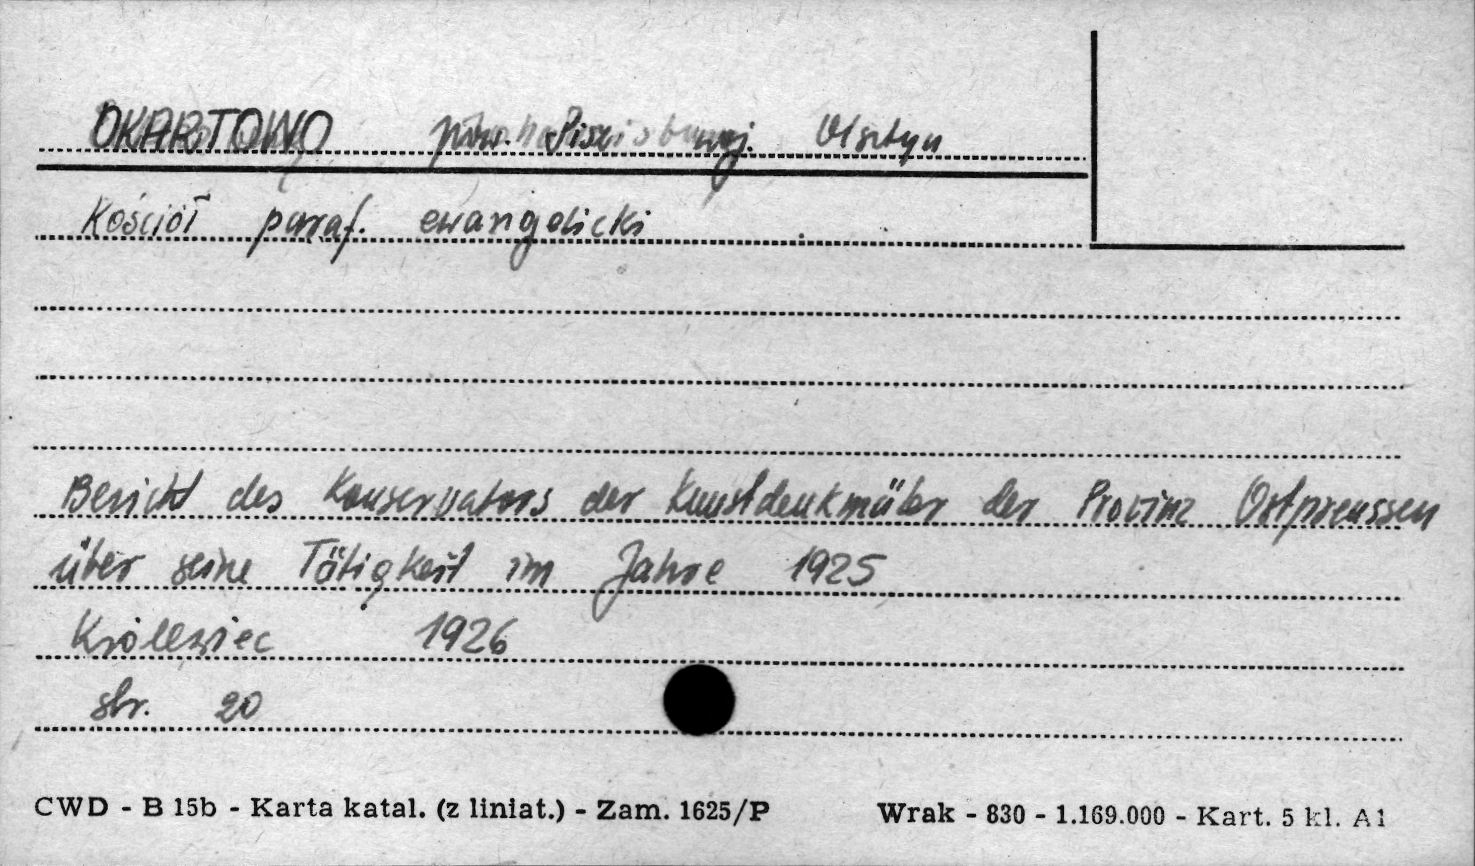 OKARTOWO pow. Pisz woj. Olsztyn
Kościół paraf. ewangelicki
Bericht des Konservators der Kunstdenkmäler der Provinz Ostpreussen
über seine Tätigkeit im Jahre 1925
Królewiec 1926
str. 20
CWD - B 15b - Karta katal. (z liniat.) - Zam. 1625/P Wrak - 830 - 1.169.000 - Kart. 5 kl. A1